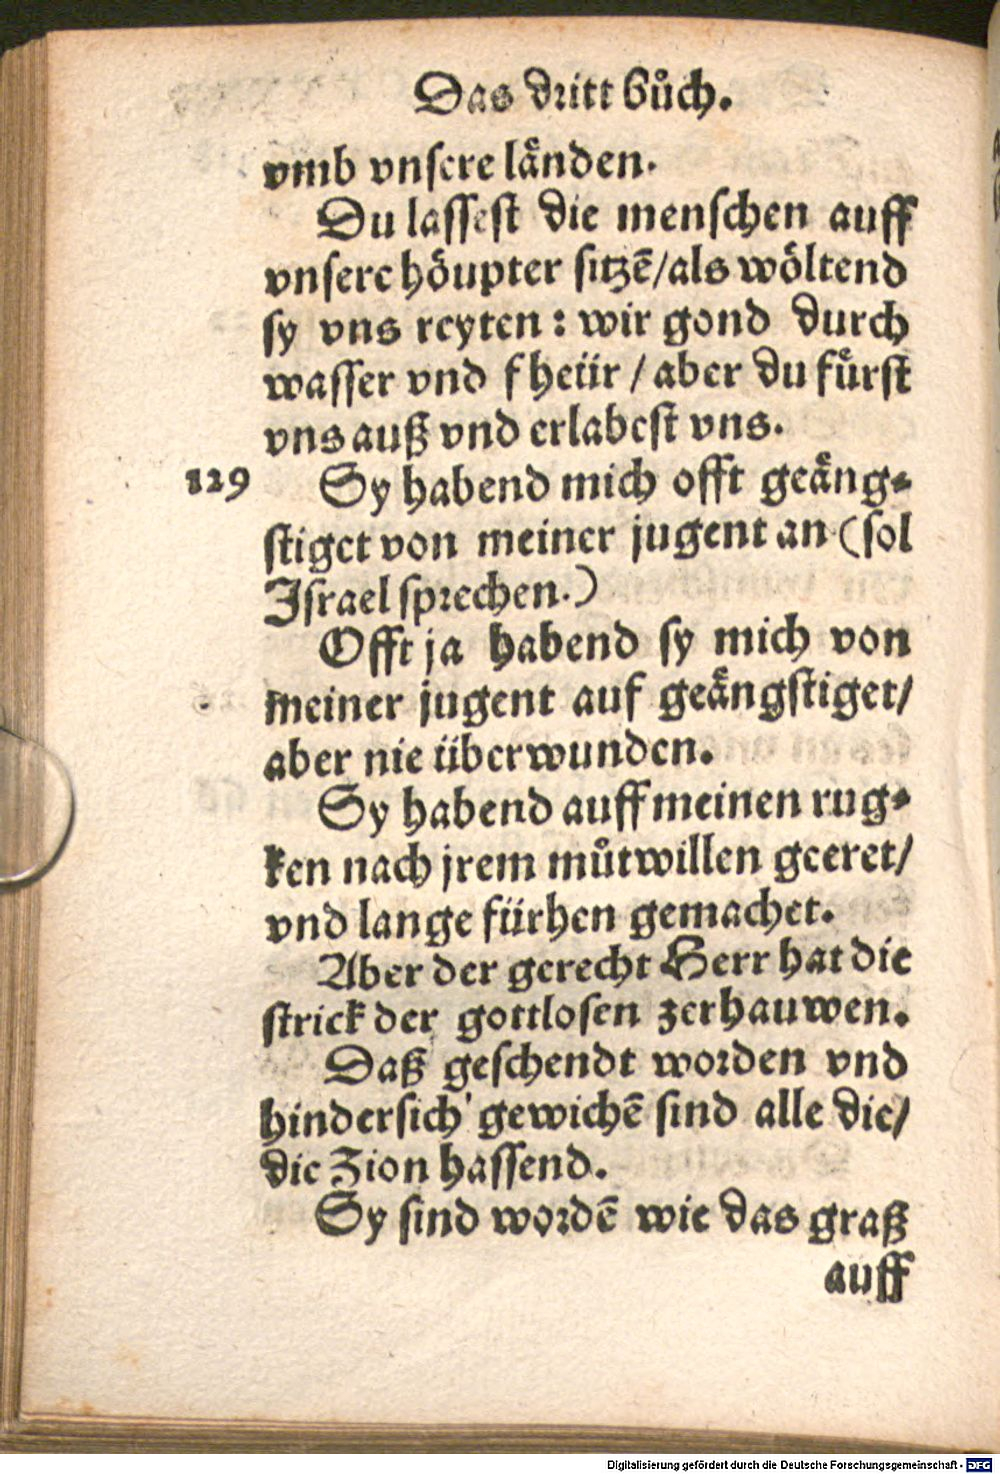 Das dritt Bůch.
vmb vnsere länden.
Du lassest die menschen auff
vnsere höupter sitzē/als wöltend
sy vns reyten: wir gond durch
wasser vnd fheür / aber du fůrst
vns auß vnd erlabest vns.
129 Sy habend mich offt geäng-
stiget von meiner jugent an (sol
Israel sprechen.)
Offt ja habend sy mich von
meiner jugent auf geängstiget/
aber nie überwunden.
Sy habend auff meinen rug-
ken nach jrem můtwillen geeret/
vnd lange fürhen gemachet.
Aber der gerecht Herr hat die
strick der gottlosen zerhauwen.
Daß geschendt worden vnd
hindersich gewichē sind alle die/
die Zion hassend.
Sy sind wordē wie das graß
auff
Digitalisierung gefördert durch die Deutsche Forschungsgemeinschaft - DFG